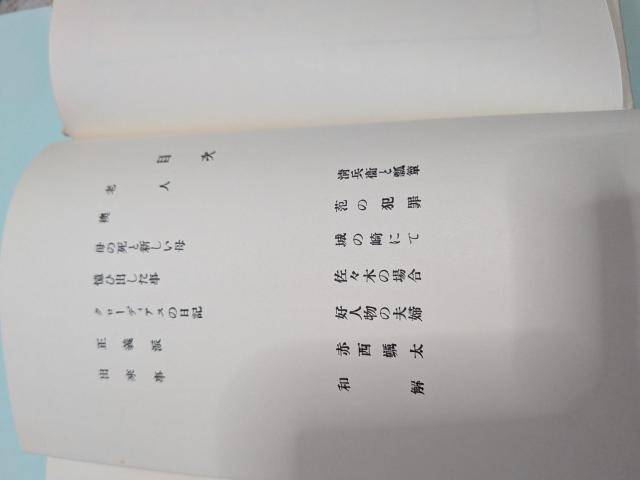 目次
老人
襖
母の死と新しい母
憶ひ出した事
クローディアスの日記
正義派
出來事
清兵衞と瓢簞
范の犯罪
城の崎にて
佐々木の場合
好人物の夫婦
赤西蠣太
和解